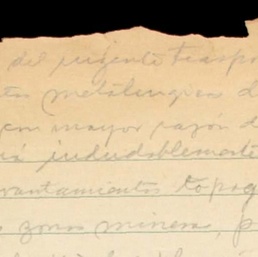 del urgente traspo
tos metalúrgicos d
con mayor razón d
rá indudablemente
levantamientos topog
s zonas mineras, p